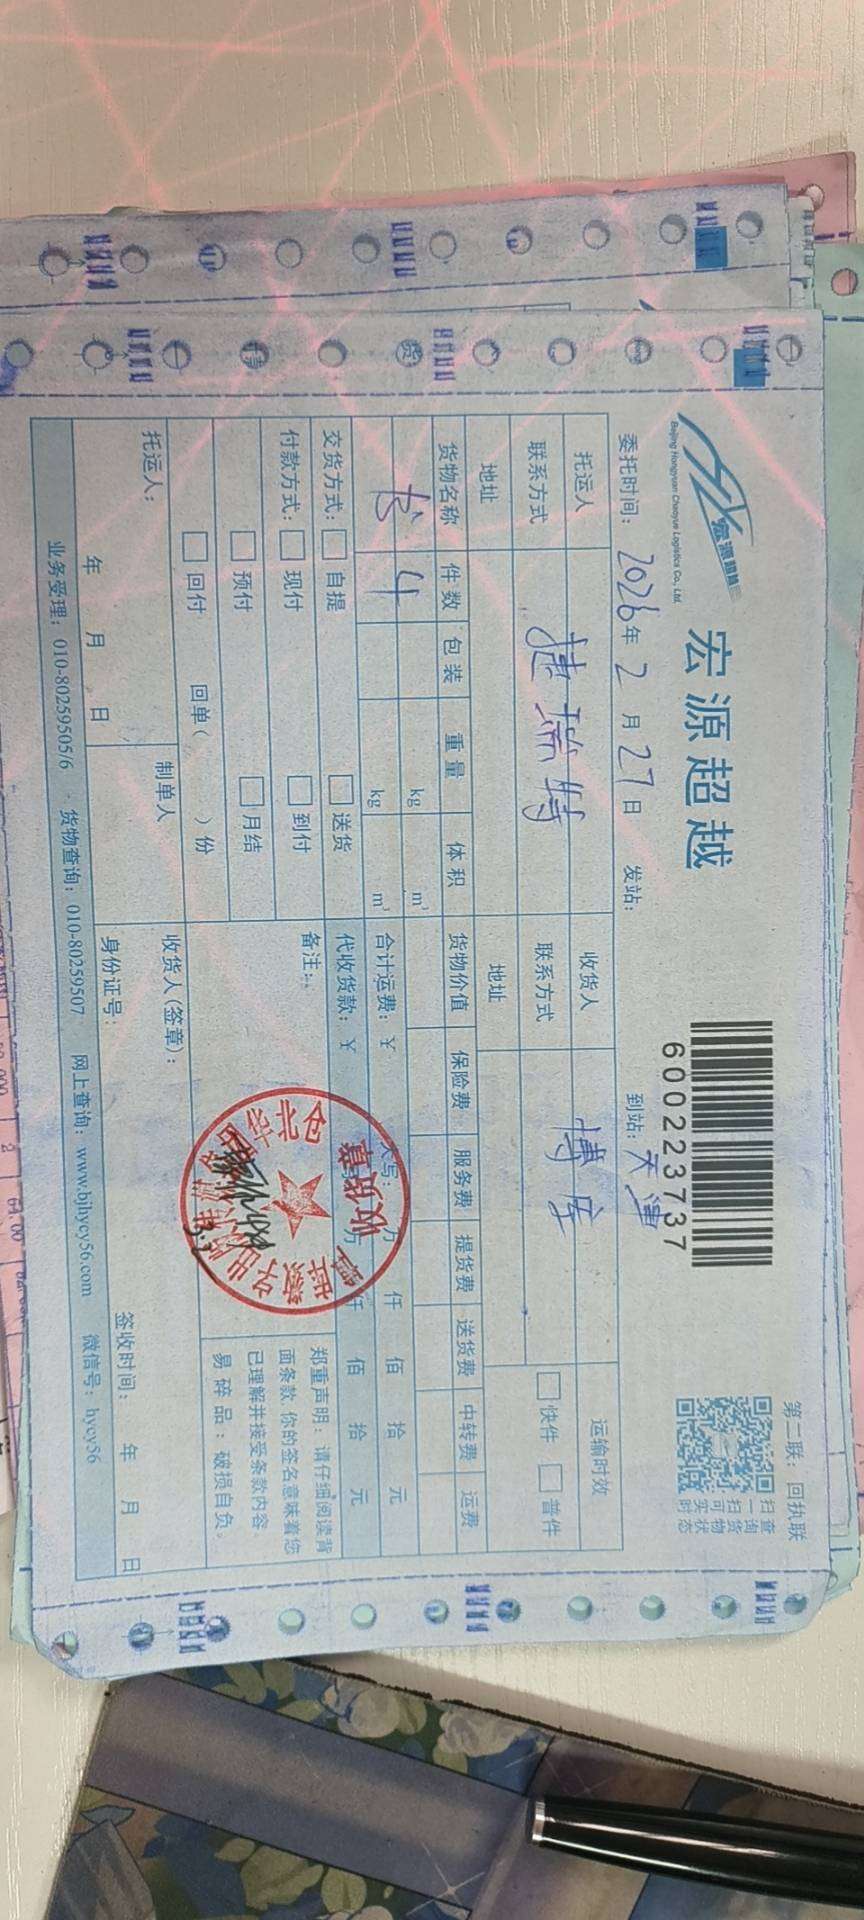 宏源超越
Beijing Hongyuan Chaoyue Logistics Co., Ltd.
宏源超越
600223737
第二联：回执联
扫一扫可实时
查询货物状态
委托时间：2026年2月27日 发站： 到站：天津
托运人 捷瑞特 收货人 博库 运输时效
联系方式 联系方式 快件 普件
地址 地址
货物名称 件数 包装 重量 体积 货物价值 保险费 服务费 提货费 送货费 中转费 运费
书 4 kg m³
kg m³ 合计运费：￥ 大写： 万 仟 佰 拾 元
交货方式： 自提 送货 代收货款：￥ 万 仟 佰 拾 元
付款方式： 现付 到付 备注：
预付 月结
回付 回单( )份
郑重声明：请仔细阅读背
面条款 你的签名意味着您
已理解并接受条款内容。
易碎品：破损自负。
收货章
托运人： 制单人 收货人(签章)：
年 月 日 身份证号： 签收时间： 年 月 日
业务受理：010-80259505/6 货物查询：010-80259507 网上查询：www.bjhycy56.com 微信号：hycy56